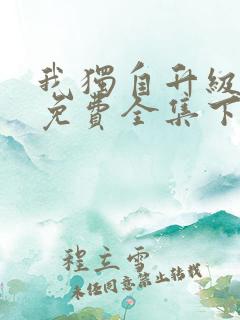 我獨自升級
免費全集下
程立雪
未经同意禁止转载